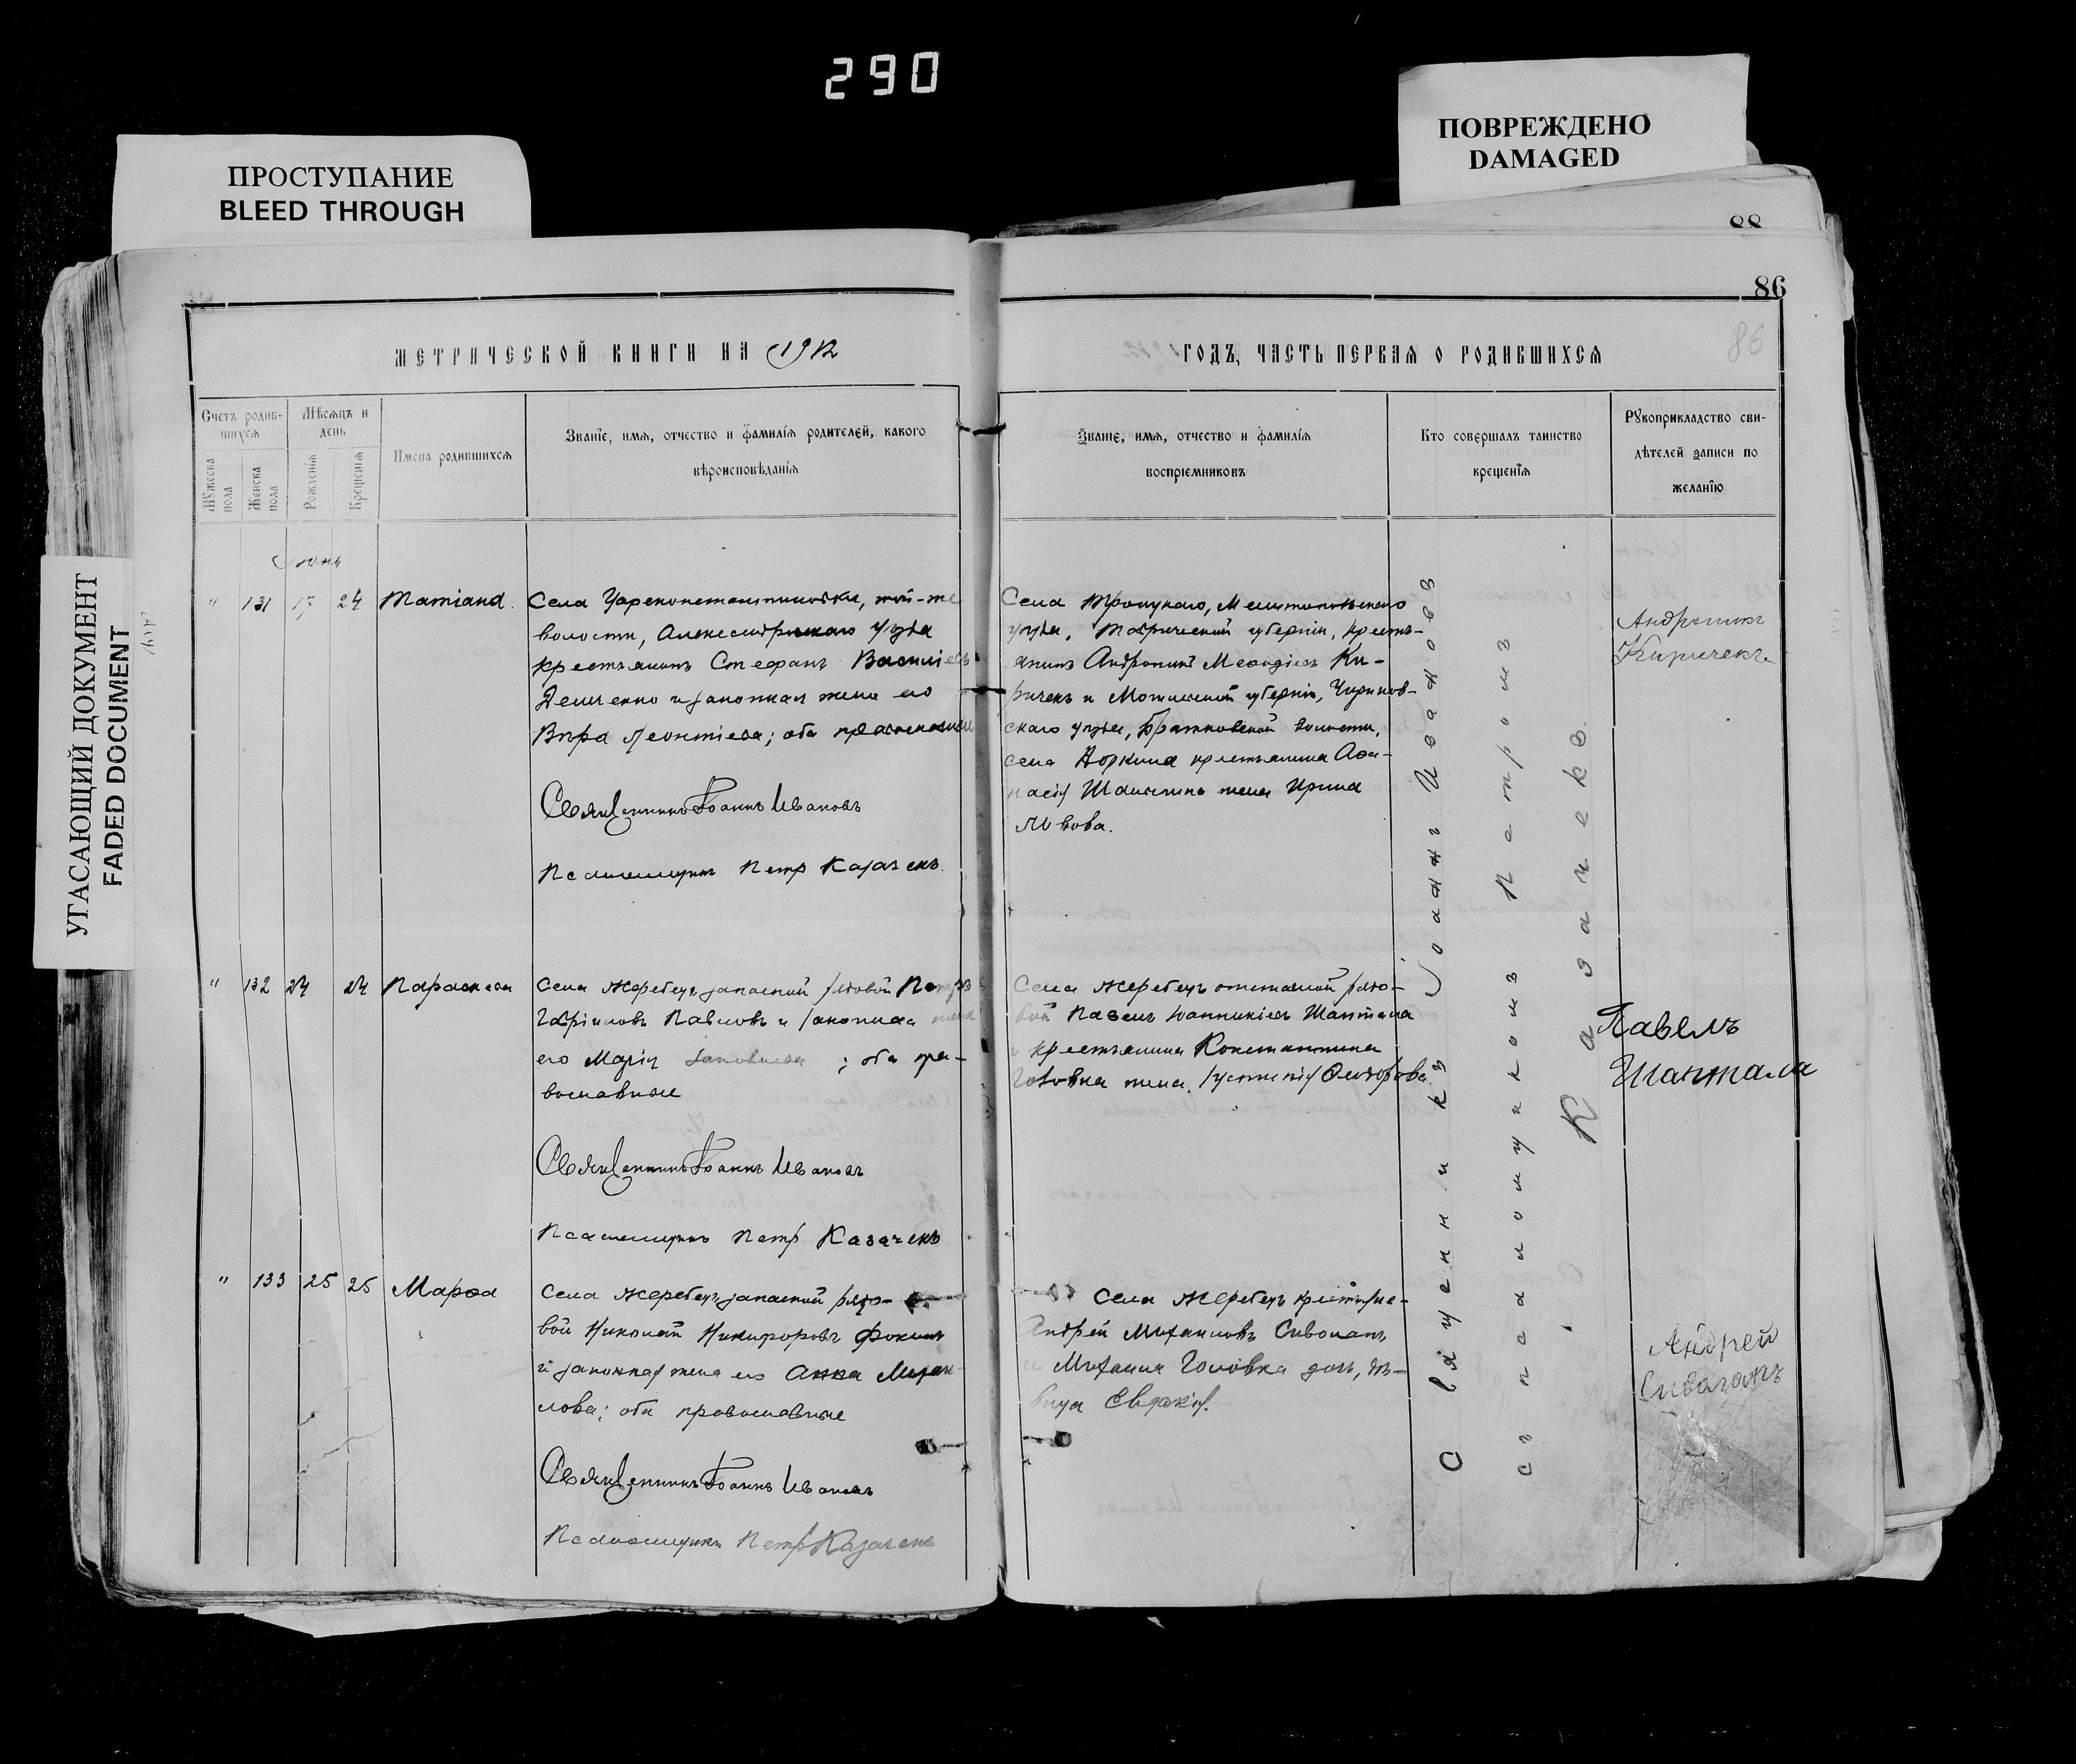 290
ПРОСТУПАНИЕ
BLEED THROUGH
ПОВРЕЖДЕНО
DAMAGED
УГАСАЮЩИЙ ДОКУМЕНТ
FADED DOCUMENT
88
86
86
МЕТРИЧЕСКОЙ КНИГИ НА 1912
ГОДЪ, ЧАСТЬ ПЕРВАЯ О РОДИВШИХСЯ
Счетъ родив-
шихся
Мѣсяцъ и
день
Мужеска
пола
Женска
пола
Рожденія
Крещенія
Имена родившихся
Званіе, имя, отчество и фамилія родителей, какого
вѣроисповѣданія
Званіе, имя, отчество и фамилія
воспріемниковъ
Кто совершалъ таинство
крещенія
Рукоприкладство сви-
дѣтелей записи по
желанію
Іюнь
" 131 17 24 Татіана
Села Цареконстантиновки, той-же
волости, Александрійскаго уѣзда
крестьянинъ Стефанъ Василіевъ
и законная жена его
Вѣра Леонтіева; оба православные
Священникъ Іоаннъ Ивановъ
Псаломщикъ Петр Казачекъ
Села Троицкаго, Мелитопольскаго
уѣзда, Таврической губерніи, кресть-
янинъ Андроникъ Меѳодіевъ Ки-
риченъ и Могилевской губерніи, Чериков-
скаго уѣзда, волости,
села крестьянина Аѳа-
насія жена Ирина
Львова.
Андроникъ
Киричекъ
" 132 24 24 Параскева
Села Жеребецъ запасной рядовой Петръ
Гавріиловъ Павловъ и законная жена
его Марія ; оба пра-
вославные
Священникъ Іоаннъ Ивановъ
Псаломщикъ Петр Казачекъ
Села Жеребецъ отставной рядо-
вой Павелъ Іоанникіевъ Шаптала
и крестьянина Константина
Головка жена
Павелъ
Шаптала
" 133 25 25 Марѳа
Села Жеребецъ, запасной рядо-
вой Николай Никифоровъ Фокинъ
и законная жена его Анна Михаи-
лова; оба православные
Священникъ Іоаннъ Ивановъ
Псаломщикъ Петр Казачекъ
Села Жеребецъ крестьяне
Андрей Михаиловъ Сиволанъ
и Михаила Головка дочь, дѣ-
вица Евдокія.
Андрей
Священникъ Іоаннъ Ивановъ
съ псаломщикомъ Петромъ
Казачекъ.